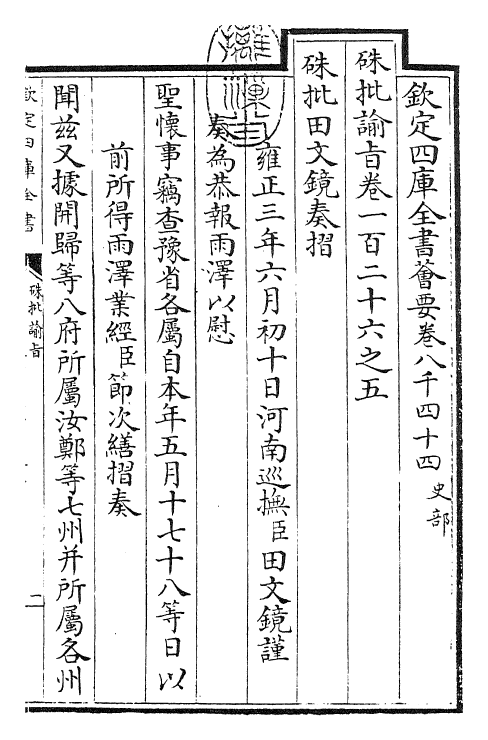 欽定四庫全書薈要卷八千四十四 史部
硃批諭旨卷一百二十六之五
硃批田文鏡奏摺
雍正三年六月初十日河南巡撫臣田文鏡謹
奏為恭報雨澤以慰
聖懷事竊查豫省各屬自本年五月十七十八等日以
前所得雨澤業經臣節次繕摺奏
聞兹又據開歸等八府所屬汝鄭等七州并所屬各州
欽定四庫全書
硃批諭旨
二